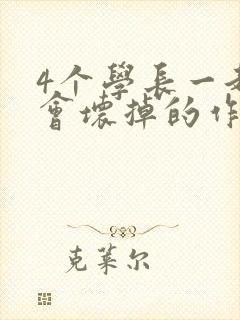 4个學長一起
會壞掉的作
克莱尔